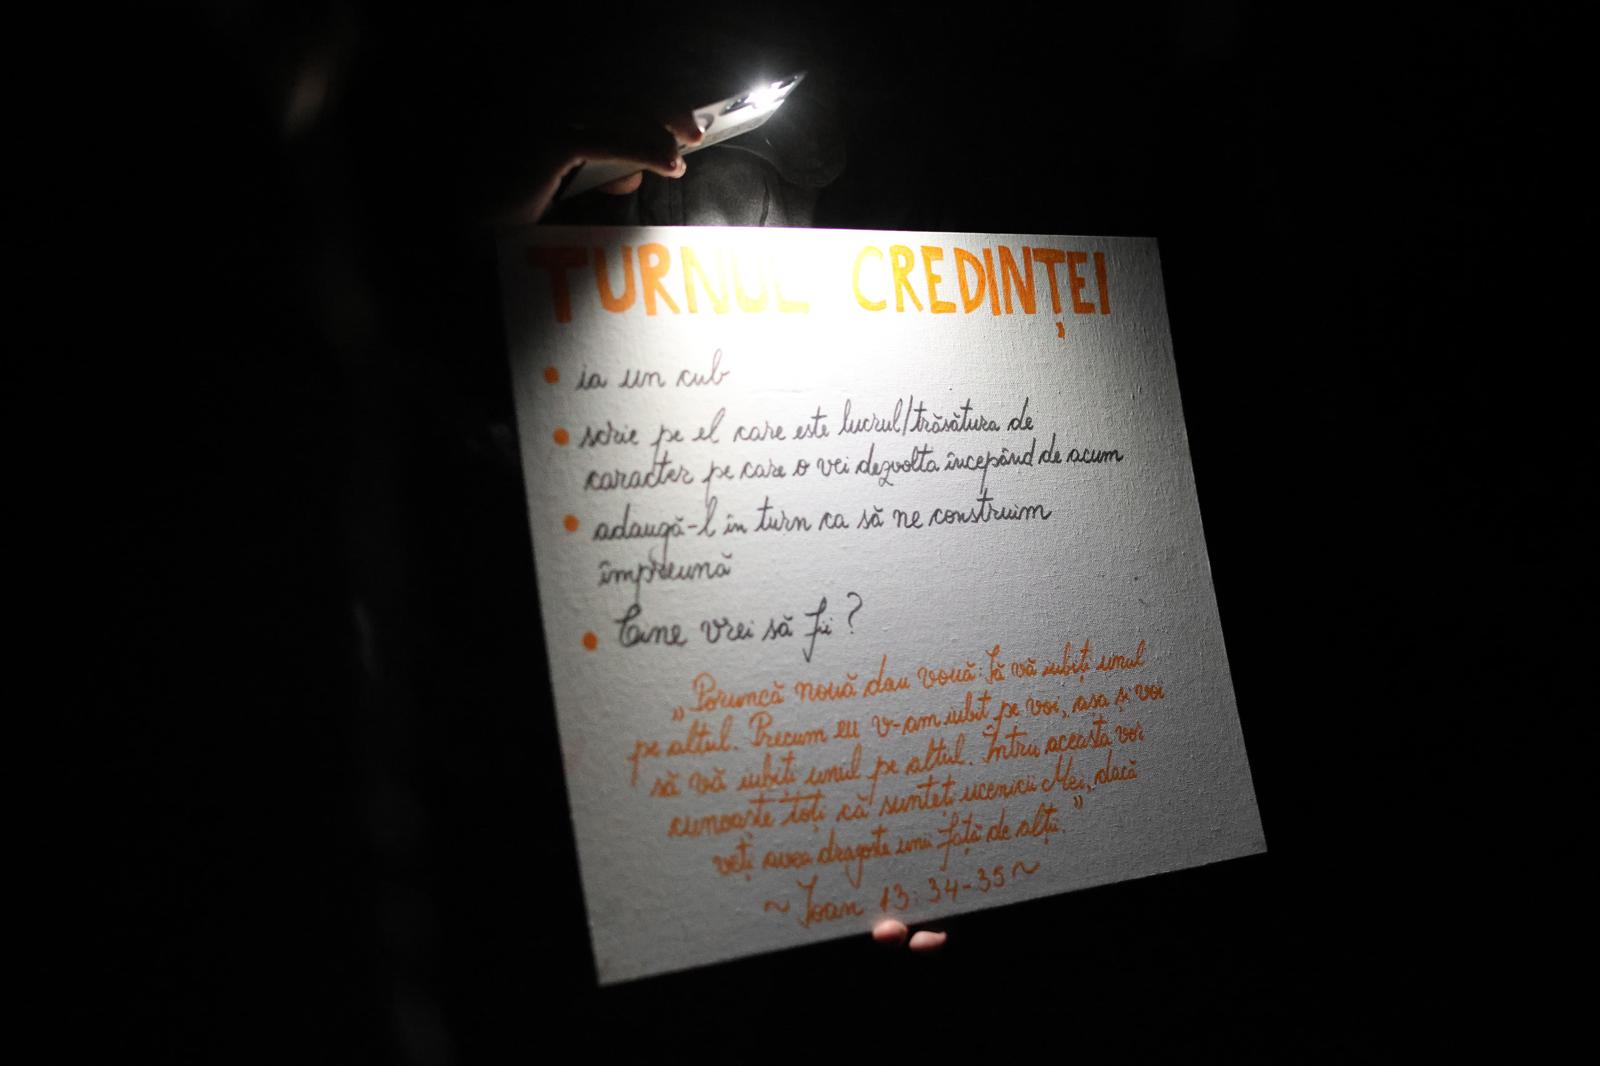 TURNUL CREDINȚEI
• ia un cub
• scrie pe el care este lucrul/trăsătura de
caracter pe care o vei dezvolta începând de acum
• adaugă-l în turn ca să ne construim
împreună
• Cine vrei să fii?
„Poruncă nouă dau vouă: Să vă iubiți unul
pe altul. Precum eu v-am iubit pe voi, asa și voi
să vă iubiți unul pe altul. Întru aceasta vor
cunoaste toți că sunteți ucenicii Mei, dacă
veți avea dragoste unii față de alții."
~ Ioan 13:34-35 ~